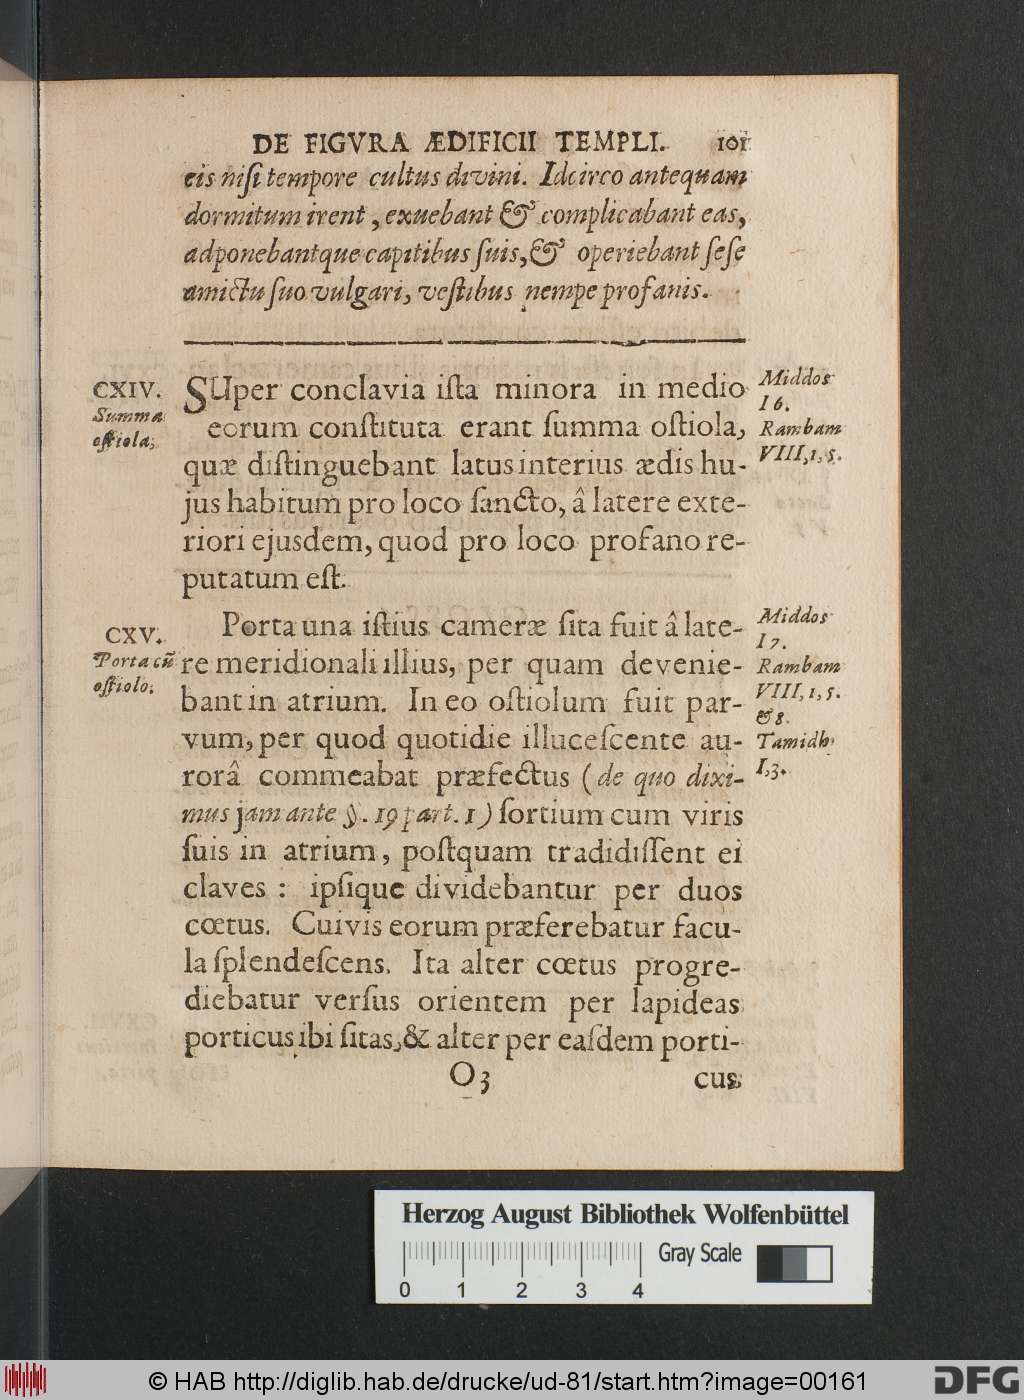 DE FIGVRA ÆDIFICII TEMPLI. 101
eis niſi tempore cultus divini. Idcirco antequam
dormitum irent, exuebant & complicabant eas,
adponebantque capitibus ſuis, & operiebant ſeſe
amictu ſuo vulgari, veſtibus nempe profanis.
CXIV.
Summa
oſtiola;
SUper conclavia iſta minora in medio
eorum conſtituta erant ſumma oſtiola,
quæ diſtinguebant latus interius ædis hu-
jus habitum pro loco ſancto, â latere exte-
riori ejusdem, quod pro loco profano re-
putatum eſt.
Middos
I 6.
Rambam
VIII, 1, 5.
CXV.
Porta cũ
oſtiolo.
Porta una iſtius cameræ ſita fuit â late-
re meridionali illius, per quam devenie-
bant in atrium. In eo oſtiolum fuit par-
vum, per quod quotidie illuceſcente au-
rorâ commeabat præfectus (de quo dixi-
mus jam ante §. 19 part. 1) ſortium cum viris
ſuis in atrium, poſtquam tradidiſſent ei
claves : ipſique dividebantur per duos
cœtus. Cuivis eorum præferebatur facu-
la ſplendeſcens. Ita alter cœtus progre-
diebatur verſus orientem per lapideas
porticus ibi ſitas, & alter per eaſdem porti-
Middos
I 7.
Rambam
VIII, 1, 5.
& 8.
Tamidh
I, 3.
O 3
cus
Herzog August Bibliothek Wolfenbüttel
Gray Scale
0 1 2 3 4
© HAB http://diglib.hab.de/drucke/ud-81/start.htm?image=00161
DFG